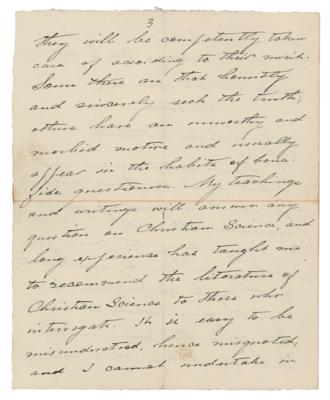 3
they will be competently taken
care of according to their merit.
Some there are that honestly
and sincerely seek the truth;
others have an unworthy and
morbid motive and usually
appear in the habits of bona
fide questioners. My teachings
and writings will answer any
question on Christian Science, and
long experience has taught me
to recommend the literature of
Christian Science to those who
interrogate. It is easy to be
misunderstood, hence misquoted,
and I cannot undertake in